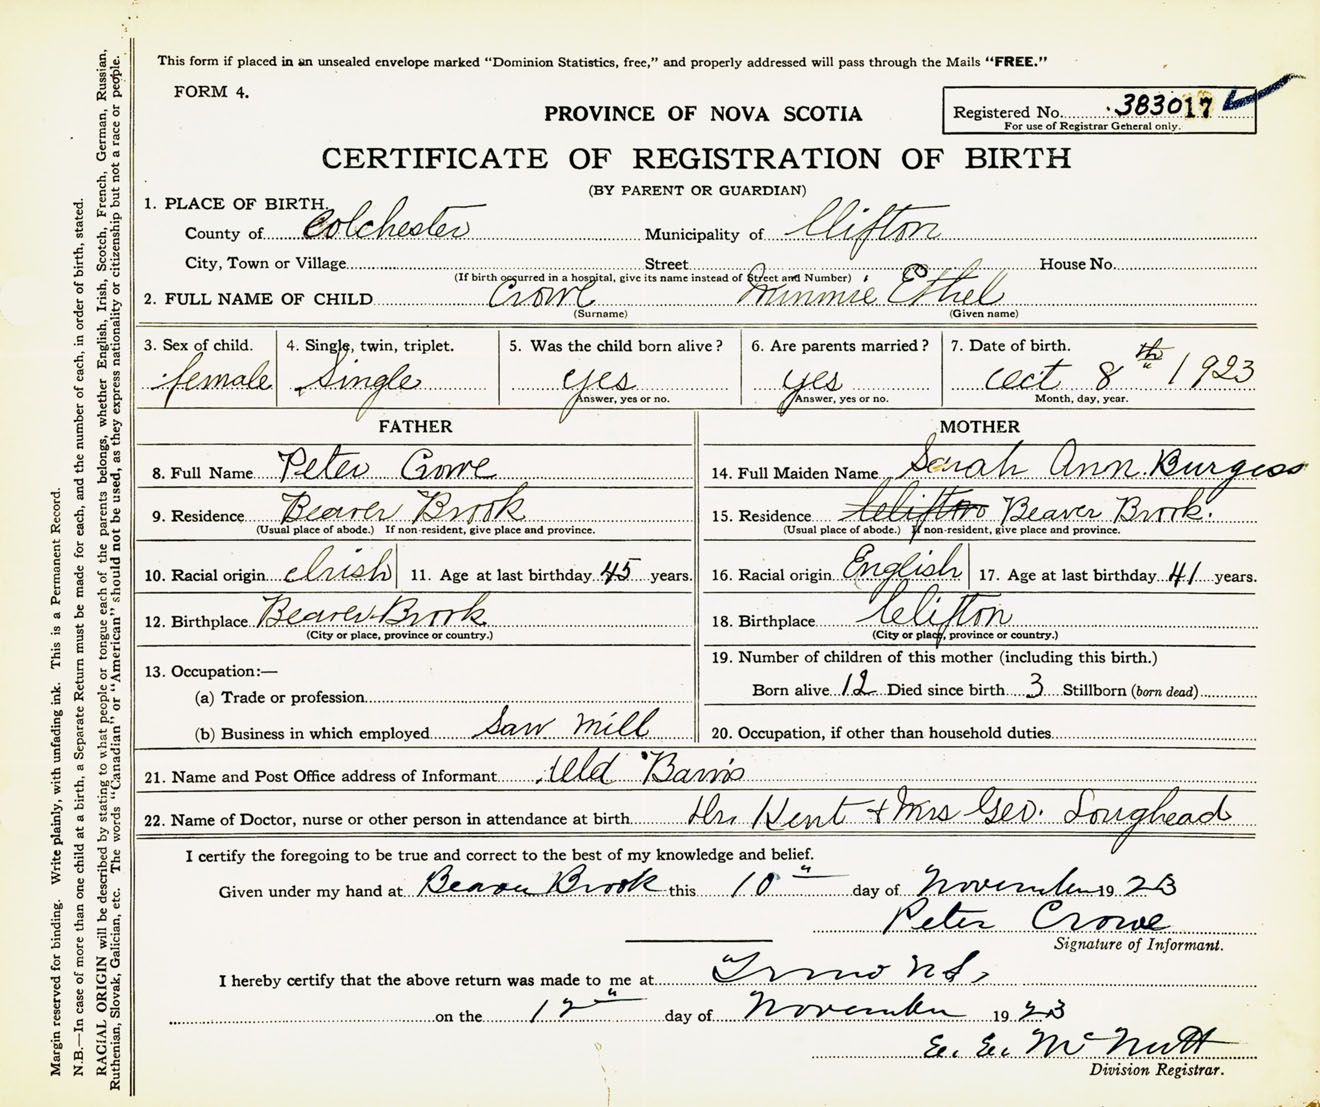 This form if placed in an unsealed envelope marked "Dominion Statistics, free," and properly addressed will pass through the Mails "FREE."
FORM 4.
Registered No. 383017
For use of Registrar General only.
PROVINCE OF NOVA SCOTIA
CERTIFICATE OF REGISTRATION OF BIRTH
(BY PARENT OR GUARDIAN)
1. PLACE OF BIRTH.
County of Colchester Municipality of Clifton
City, Town or Village Street House No.
(If birth occurred in a hospital, give its name instead of Street and Number)
2. FULL NAME OF CHILD Crowe Minnie Ethel
(Surname) (Given name)
3. Sex of child. 4. Single, twin, triplet. 5. Was the child born alive? 6. Are parents married? 7. Date of birth.
female Single yes yes Oct 8th 1923
Answer, yes or no. Answer, yes or no. Month, day, year.
FATHER MOTHER
8. Full Name Peter Crowe 14. Full Maiden Name Sarah Ann Burgess
9. Residence Beaver Brook 15. Residence Clifton Beaver Brook.
(Usual place of abode.) If non-resident, give place and province. (Usual place of abode.) If non-resident, give place and province.
10. Racial origin Irish 11. Age at last birthday 45 years. 16. Racial origin English 17. Age at last birthday 41 years.
12. Birthplace Beaver Brook 18. Birthplace Clifton
(City or place, province or country.) (City or place, province or country.)
13. Occupation:— 19. Number of children of this mother (including this birth.)
(a) Trade or profession Born alive 12 Died since birth 3 Stillborn (born dead)
(b) Business in which employed Saw mill 20. Occupation, if other than household duties
21. Name and Post Office address of Informant Old Barns
22. Name of Doctor, nurse or other person in attendance at birth Dr. Kent + Mrs Geo. Loughead
I certify the foregoing to be true and correct to the best of my knowledge and belief.
Given under my hand at Beaver Brook this 10" day of November 1923
Peter Crowe
Signature of Informant.
I hereby certify that the above return was made to me at Truro N.S.
on the 12" day of November 1923
E. E. McNutt
Division Registrar.
Margin reserved for binding. Write plainly, with unfading ink. This is a Permanent Record.
N.B.—In case of more than one child at a birth, a Separate Return must be made for each, and the number of each, in order of birth, stated.
RACIAL ORIGIN will be described by stating to what people or tongue each of the parents belongs, whether English, Irish, Scotch, French, German, Russian,
Ruthenian, Slovak, Galician, etc. The words "Canadian" or "American" should not be used, as they express nationality or citizenship but not a race or people.